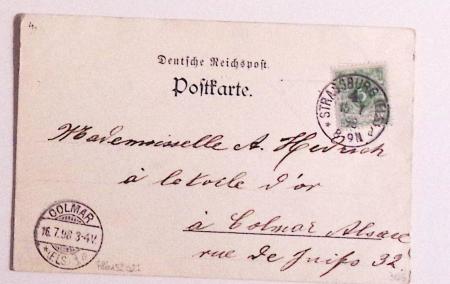 4.
Deutsche Reichspost
Postkarte.
* STRASSBURG (ELS.) *
8-9N
Mademoiselle A. Hedrich
à l'étoile d'or
à Colmar Alsace
rue de Juifs 32.
COLMAR
16.7.98 3-4V.
* (ELS.) a